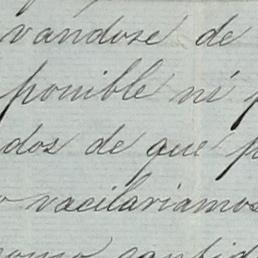 vandose de
ponible ni p
dos de que p
o vacilariamos